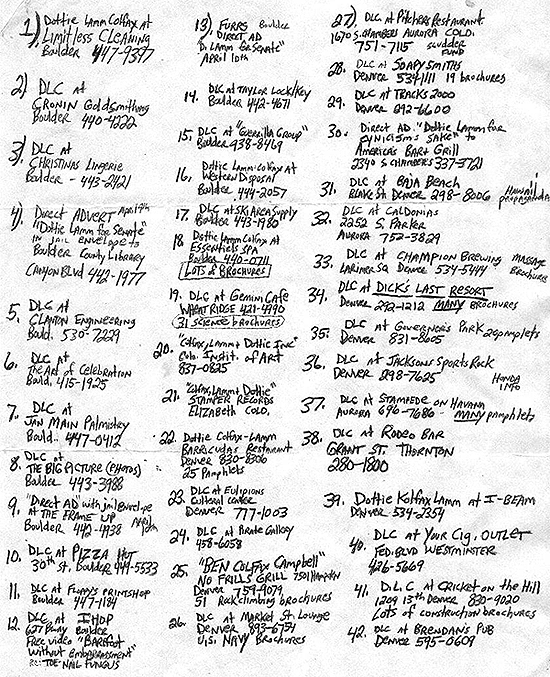 1) Dottie Lamm Colfax at
Limitless Cleaning
Boulder 447-9397
2) DLC at
Cronin Goldsmithing
Boulder 440-4222
3) DLC at
Christinas Lingerie
Boulder - 443-2421
4) Direct Advert April 9th
"Dottie Lamm for Senate"
in jail envelope to
Boulder County Library
Canyon Blvd 442-1977
5. DLC at
Clanton Engineering
Bould. 530-7229
6. DLC at
The Art of Celebration
Bould. 415-1925
7. DLC at
Jan Main Palmistry
Bould. 447-0412
8. DLC at
The Big Picture (Photos)
Boulder 443-3988
9. "Direct AD" with jail Envelope
at The Frame Up April
Boulder 442-4938 10th
10. DLC at Pizza Hut
30th St. Boulder 449-5533
11. DLC at Floppys Printshop
Boulder 447-1184
12. DLC at IHOP
Boulder
Free video "Barefoot
without Embarrassment"
RE: Toe-Nail Fungus
13) Furrs Boulder
Direct AD
D. Lamm for Senate"
April 10th
14. DLC at Taylor Lock/Key
Boulder 442-4671
15. DLC at "Guerrilla Group"
Boulder 938-8469
16. Dottie Lamm-Colfax at
Western Disposal
Boulder 444-2057
17. DLC at Ski Area Supply
Boulder 443-1980
18 Dottie Lamm Colfax at
Essentiels Spa
Boulder 440-0711
Lots of Brochures
19. DLC at Gemini Cafe
Wheatridge 421-4990
31 science brochures
20. "Colfax, Lamm & Dottie Inc"
Colo. Instit. of Art
837-0825
21. "Colfax, Lamm & Dottie"
Stamper Records
Elizabeth Colo.
22. Dottie Colfax-Lamm
Barricuda's Restaurant
Denver 830-8306
25 Pamphlets
23. DLC at Eulipions
Cultural center
Denver 777-1003
24. DLC at Pirate Gallery
458-6058
25. "Ben Colfax Campbell"
No Frills Grill 7501 Hampden
Denver 759-9079
51 Rockclimbing brochures
26. DLC at Market St. Lounge
Denver 893-6754
U.S. Navy Brochures
27) DLC at Pitchers Restaurant
1670 S. Chambers Aurora Colo.
751-7115 Scudder
Fund
28. DLC at Soapy Smiths
Denver 534-1111 19 brochures
29. DLC at Tracks 2000
Denver 292-6600
30. Direct AD. "Dottie Lamm for
Cynicism's Sake" to
America's Bar & Grill
2340 S. Chambers 337-3721
31. DLC at Baja Beach
Blake St. Denver 298-8006 Hawaii
32. DLC at Caldonias
2252 S. Parker
Aurora 752-3829
33. DLC at Champion Brewing massage
Larimer Sq Denver 534-5444 Brochures
34. DLC at Dick's Last Resort
Denver 292-1212 Many Brochures
35. DLC at Governor's Park 20 pamplets
Denver 831-8605
36. DLC at Jacksons Sports Rock
Denver 298-7625 Honda
Info
37. DLC at Stampede on Havana
Aurora 696-7686 - Many pamphlets
38. DLC at Rodeo Bar
Grant St. Thornton
280-1800
39. Dottie Kolfax Lamm at I-Beam
Denver 534-2354
40. DLC at Your Cig. Outlet
Fed. Blvd Westminster
426-5669
41. D.L.C at Cricket on the Hill
1209 13th Denver 830-9020
Lots of construction brochures
42. DLC at Brendan's Pub
Denver 595-0609